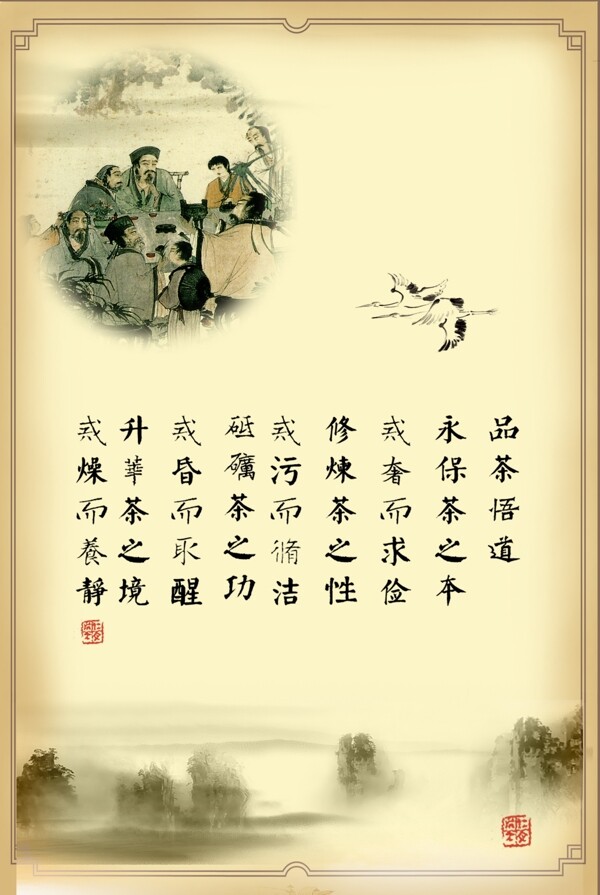 品茶悟道
永保茶之本
戒奢而求俭
修煉茶之性
戒污而脩洁
砥礪茶之功
戒昏而取醒
升華茶之境
戒燥而養靜